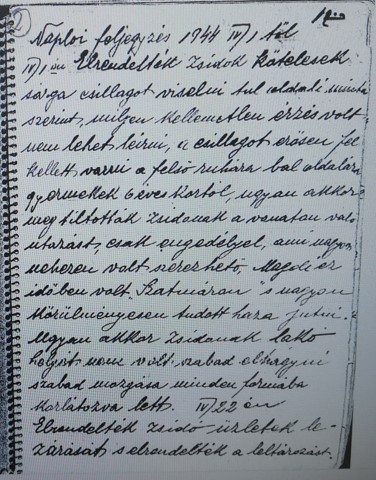 2
1900
Naplói feljegyzés 1944 IV/1 től
IV/1 én Elrendelték Zsidók kötelesek
sárga csillagot viselni tul oldali minta
szerint, milyen kellemetlen érzés volt
nem lehet leirni, a csillagot erősen fel
kellett varrni a felső ruhára bal oldalára
gyermekek 6 éves kortól, ugyan akkor
meg tiltották Zsidónak a vonaton való
utazást, csak engedélyel, ami nagyon
nehezen volt szerezhető, Magdi ez
időben volt "Szatmáron" s nagyon
körülményesen tudott haza jutni.
Ugyan akkor Zsidónak lakó
helyét nem volt szabad elhagyni
szabad mozgása minden formába
korlátozva lett. IV/22 én
Elrendelték Zsidó üzletek le-
zárását s elrendelték a leltározást.